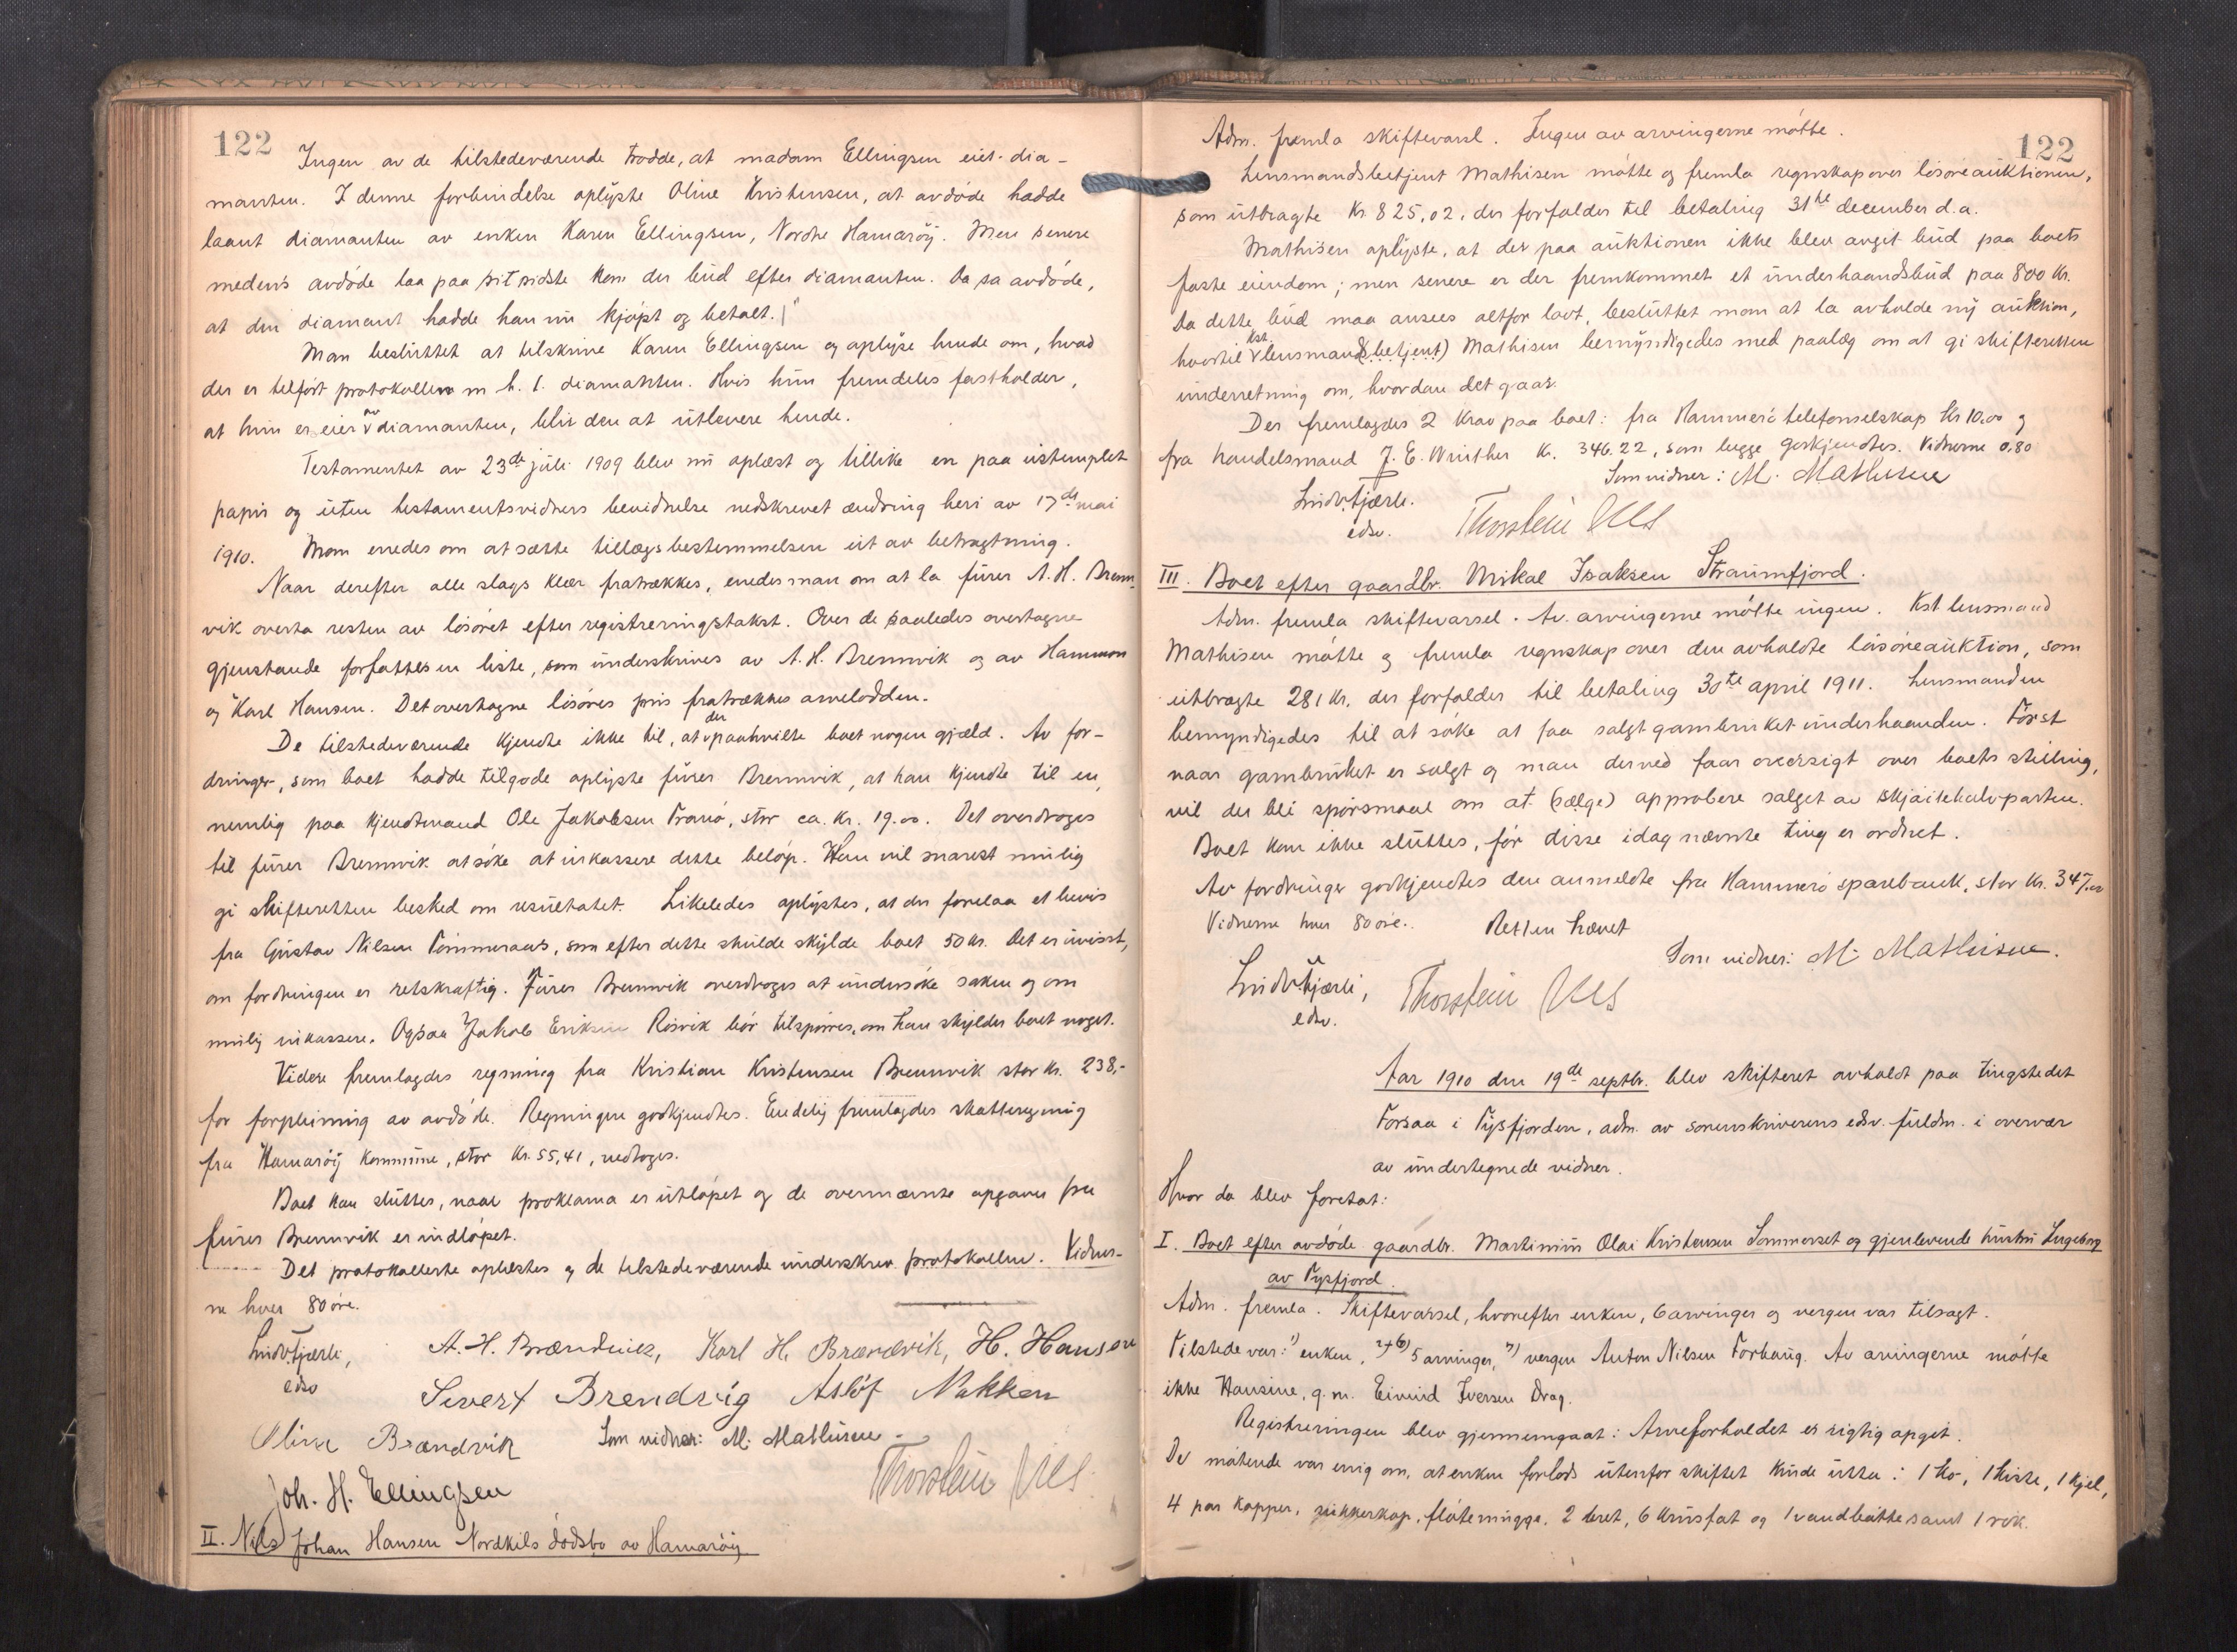 122
Ingen av de tilstedeværende trodde, at madam Ellingsen eiet dia-
manten. I denne forbindelse oplyste Oline Kristensen, at avdøde hadde
laant diamanten av enken Karen Ellingsen, Nordre Hamarøy. Men senere
medens avdøde laa paa sit sidste kom der bud efter diamanten. Da sa avdøde,
at den diamant hadde han nu kjøpt og betalt.
Man besluttet at tilskrive Karen Ellingsen og oplyse hende om, hvad
der er tilført protokollen m. h. t. diamanten. Hvis hun fremdeles fastholder,
at hun er eier av diamanten, blir den at utlevere hende.
Testamentet av 23de juli 1909 blev nu oplæst og tillike en paa ustemplet
papir og uten testamentsvidners bevidnelse nedskrevet ændring heri av 17de mai
1910. Man enedes om at sætte tillægsbestemmelsen ut av betragtning.
Naar derefter alle slags klær fratrækkes, enedes man om at la furer A. H. Brenn-
vik overta resten av løsøret efter registreringstakst. Over de saaledes overtagne
gjenstande forfattes en liste, som underskrives av A. H. Brennvik og av Hammon
og Karl Hansen. Det overtagne løsøres pris fratrækkes arvelodden.
De tilstedeværende kjendte ikke til, at der paahvilte boet nogen gjæld. Av for-
dringer, som boet hadde tilgode oplyste furer Brennvik, at han kjendte til en,
nemlig paa kjendtmand Ole Jakobsen Tranø, stor ca. kr. 19.00. Det overdroges
til furer Brennvik at søke at inkassere dette beløp. Han vil snarest mulig
gi skifteretten besked om resultatet. Likeledes oplystes, at der forelaa et bevis
fra Gustav Nilsen Tømmeraas, som efter dette skulde skylde boet 50 kr. Det er uvisst,
om fordringen er retskraftig. Furer Brennvik overdroges at undersøke saken og om
mulig inkassere. Ogsaa Jakob Eriksen Rosvik bør tilspørres, om han skylder boet noget.
Videre fremlagdes regning fra Kristian Kristensen Brennvik stor kr. 238,-
for forpleining av avdøde. Regningen godkjendtes. Endelig fremlagdes skatteregning
fra Hamarøy kommune, stor kr. 55,41, vedtoges.
Boet kan sluttes, naar proklama er utløpet og de ovennævnte opgaver fra
furer Brennvik er indløpet.
Det protokollerte oplæstes og de tilstedeværende underskrev protokollen. Vidner-
ne hver 80 øre.
Lindv. Fjærli, A. H. Brændvik, Karl H. Brændvik, H. Hansen
edsv Severt Brendvig Asløf Nakken
Oline Brændvik Som vidner: M. Mathisen
Thorstein
Joh. H. Ellingsen
II. Nils Johan Hansen Nordkils dødsbo av Hamarøy
122
Adm. fremla skiftevarsl. Ingen av arvingerne møtte.
Lensmandsbetjent Mathisen møtte og fremla regnskap over løsøreauktionen,
som utbragte kr. 825,02, der forfalder til betaling 31te december d.a.
Mathisen oplyste, at der paa auktionen ikke blev avgit bud paa boets
faste eiendom; men senere er der fremkommet et underhaandsbud paa 800 kr.
Da dette bud maa ansees altfor lavt, besluttet man at la avholde ny auktion,
hvortil kst. lensmand (sbetjent) Mathisen bemyndigedes med paalæg om at gi skifteretten
underretning om, hvordan det gaar.
Der fremlagdes 2 krav paa boet: fra Hammerø telefonselskap kr 10,00 og
fra handelsmand J. E. Winther kr. 346.22, som begge godkjendtes. Vidnerne 0,80
Som vidner: M. Mathisen
Lindv. Fjærli.
edsv. Thorstein
III. Boet efter gaardbr. Mikal Isaksen Straumfjord.
Adm. fremla skiftevarsel. Av arvingerne møtte ingen. Kst lensmand
Mathisen møtte og fremla regnskap over den avholdte løsøreauktion, som
utbragte 281 kr. der forfalder til betaling 30te april 1911. Lensmanden
bemyndigedes til at søke at faa salgt gambruket underhaanden. Først
naar gambruket er solgt og man derved faar oversigt over boets stilling,
vil der bli spørsmaal om at (sælge) approbere salget av skjøitehalvparten.
Boet kan ikke sluttes, før disse idag nævnte ting er ordnet.
Av fordringer godkjendtes den anmeldte fra Hammerø sparebank, stor kr. 347,00
Vidnerne hver 80 øre. Retten hævet
Som vidner: M. Mathisen.
Lindv. Fjærli, Thorstein
edsv.
Aar 1910 den 19de septbr. blev skifteret avholdt paa tingstedet
Forsaa i Tysfjorden, adm. av sorenskriverens edsv. fuldm. i overvær
av undertegnede vidner.
Hvor da blev foretat:
I. Boet efter avdøde gaardbr. Martinius Olai Kristensen Sommerset og gjenlevende hustru Ingeborg
av Tysfjord.
Adm. fremla. Skiftevarsel, hvorefter enken, 6 arvinger og vergen var tilsagt.
Tilstede var: 1) enken, 2)+6) 5 arvinger, 7) vergen Anton Nilsen Forhaug. Av arvingerne møtte
ikke Hansine, g. m. Eivind Iversen Drag.
Registreringen blev gjennemgaat: Arveforholdet er rigtig opgit.
De møtende var enig om, at enken forlods utenfor skiftet kunde utta: 1 ko, 1 kiste, 1 kjel,
4 par kopper, sukkerkop, fløtemugge, 2 bret, 6 krusfat og 1 vandbøtte samt 1 rok.